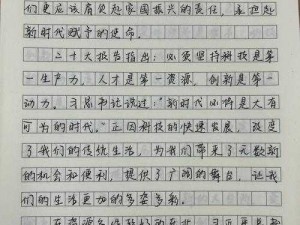 们更应该肩负起家国振兴的责任，勇担起
新时代赋予的使命。
二十大报告指出：必须坚持科技是第
一生产力，人才是第一资源，创新是第一
动力。习总书记说过，"新时代必将是大有
可为的时代。"正因科技的快速发展，改变
了我们的传统生活，为我们带来了无数新
的机会和便利，提供了广阔的舞台，让我
们的生活更加的多姿多彩。